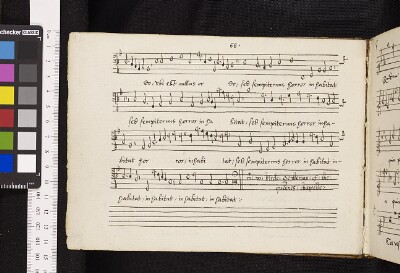 66.
Do: vbi est nullus or Do; sed sempiternus horror inhabitat:
sed sempiternus horror in ha bitat: sed sempiternus horror inha-
bitat hor ror: inhabi tat: sed sempiternus horror inhabitat in-
habitat: inhabitat: inhabitat: inhabitat:
mr wm Birde: gentleman of the
queens chapell: